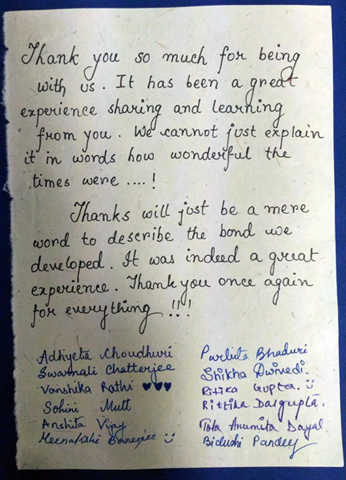 Thank you so much for being
with us. It has been a great
experience sharing and learning
from you. We cannot just explain
it in words how wonderful the
times were ....!
Thanks will just be a mere
word to describe the bond we
developed. It was indeed a great
experience. Thank you once again
for everything !!!
Adhyeta Choudhuri
Swarnali Chatterjee
Vanshika Rathi ♥♥♥
Sohini Mutt
Anshita Vijay
Meenakshi Banerjee :)
Bhaduri
Shikha Dwivedi.
Ritika Gupta. :)
Rittika Dasgupta.
Anumita Dayal
Bidushi Pandey